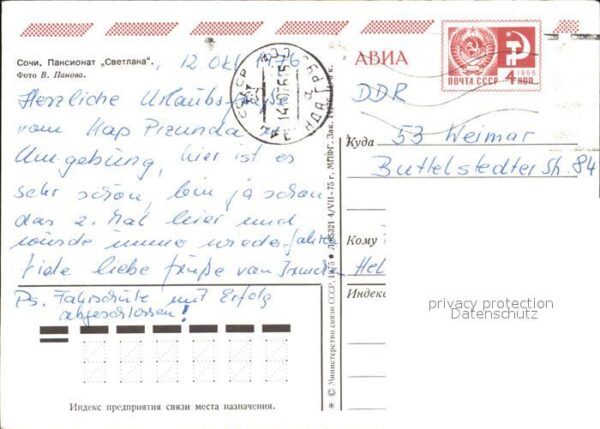 Сочи. Пансионат „Светлана“.
Фото В. Панова.
12 Okt. 1976
Herzliche Urlaubsgrüße
vom Kap Pizunda u.
Umgebung, hier ist es
sehr schön, bin ja schon
das 2. Mal hier und
würde immer wieder fahren
Viele liebe Grüße von
Ps. Fahrschule mit Erfolg
abgeschlossen!
Индекс предприятия связи места назначения.
* © Министерство связи СССР, 1975 • 4/VII-75 г. МПФГ. Зак.
АВИА
ПОЧТА СССР
1966
4 коп.
DDR
Куда 53 Weimar
Buttelstedter Str. 84
Кому
Hel
Индекс
privacy protection
Datenschutz